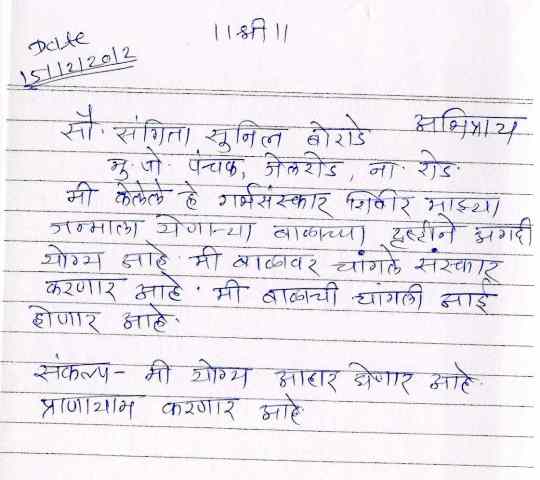 ॥श्री॥
Date
15/12/2012
अभिप्राय
सौ. संगिता सुनिल बोराडे
मु. पो. पंचक, जेलरोड, ना. रोड.
मी केलेले हे गर्भसंस्कार शिबीर माझ्या
जन्माला येणाऱ्या बाळाच्या दृष्टीने अगदी
योग्य आहे. मी बाळावर चांगले संस्कार
करणार आहे. मी बाळाची चांगली आई
होणार आहे.
संकल्प - मी योग्य आहार घेणार आहे.
प्राणायाम करणार आहे